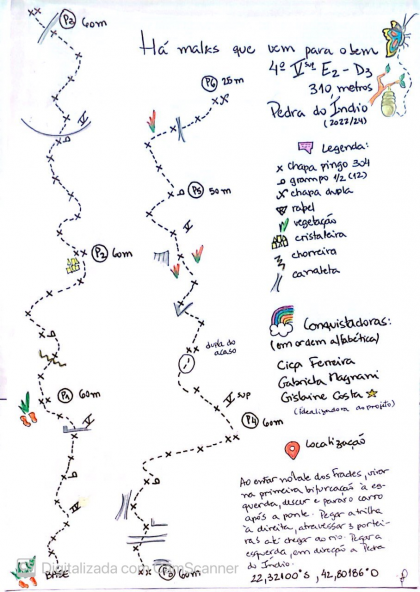 Há malks que vem para o bem
4º Vsup E2 - D3
310 metros
Pedra do Índio
(2022/24)
Legenda:
chapa pingo 304
grampo 1/2 (12)
chapa dupla
rapel
vegetação
cristaleira
chorreira
canaleta
Conquistadoras:
(em ordem alfabética)
Ciça Ferreira
Gabriela Magnani
Gislaine Costa
(Idealizadora do projeto)
Localização
Ao entrar no Vale dos Frades, virar
na primeira bifurcação à es-
querda, descer e parar o carro
após a ponte. Pegar a trilha
à direita, atravessar 3 portei-
ras até chegar ao rio. Pegar a
esquerda, em direção a Pedra
do Índio.
22,32100°S, 42,80186°O
P3 60m
V
P2 60m
P1 60m
V
IV
BASE
P6 25m
P5 50m
V
duda do
acaso
V sup
P4 60m
P3 60m
Digitalizada com CamScanner